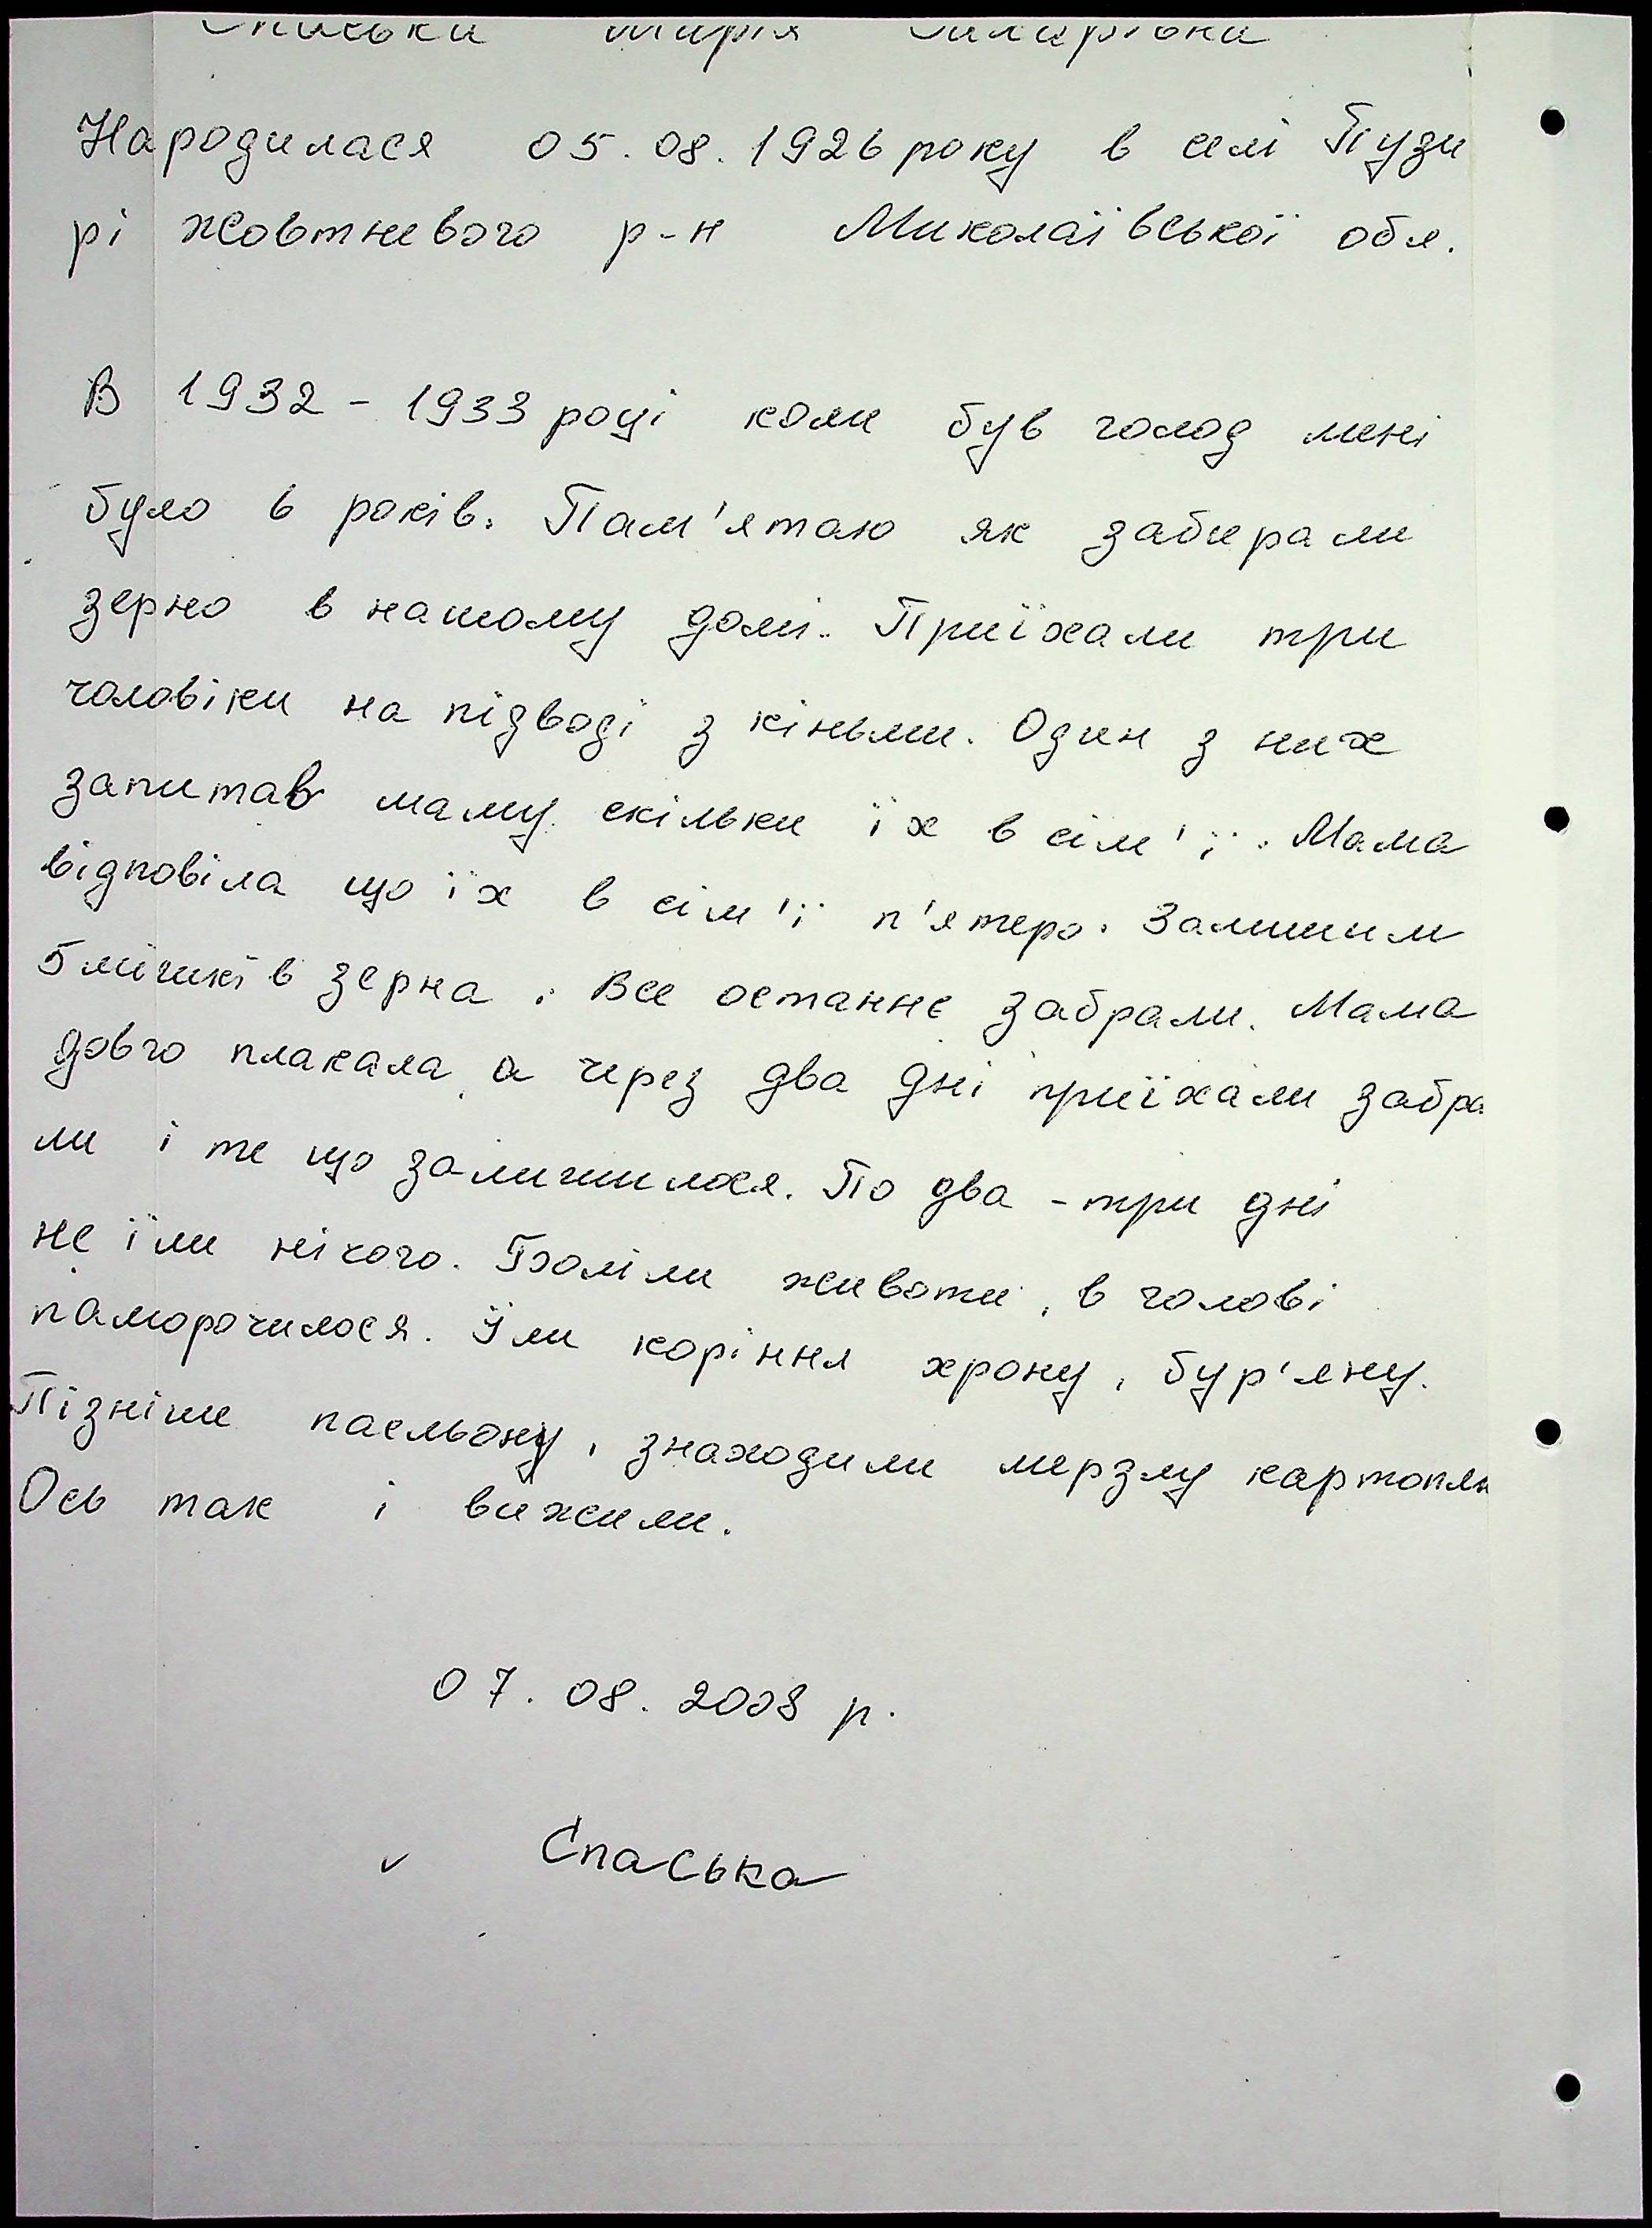 Марія
Народилася 05.08.1926 року в селі Пузи
рі жовтневого р-н Миколаївської обл.
В 1932-1933 році коли був голод мені
було 6 років. Пам'ятаю як забирали
зерно в нашому домі. Приїхали три
чоловіки на підводі з кіньми. Один з них
запитав маму скільки їх в сім'ї. Мама
відповіла що їх в сім'ї п'ятеро. Залишим
5 мішків зерна. Все останнє забрали. Мама
довго плакала, а через два дні приїхали забра
ли і те що залишилося. По два-три дні
не їли нічого. Боліли животи, в голові
паморочилося. Їли коріння хрону, бур'яну.
Пізніше пасльону, знаходили мерзлу картоплю
Ось так і вижили.
07.08.2008 р.
✓ Спаська